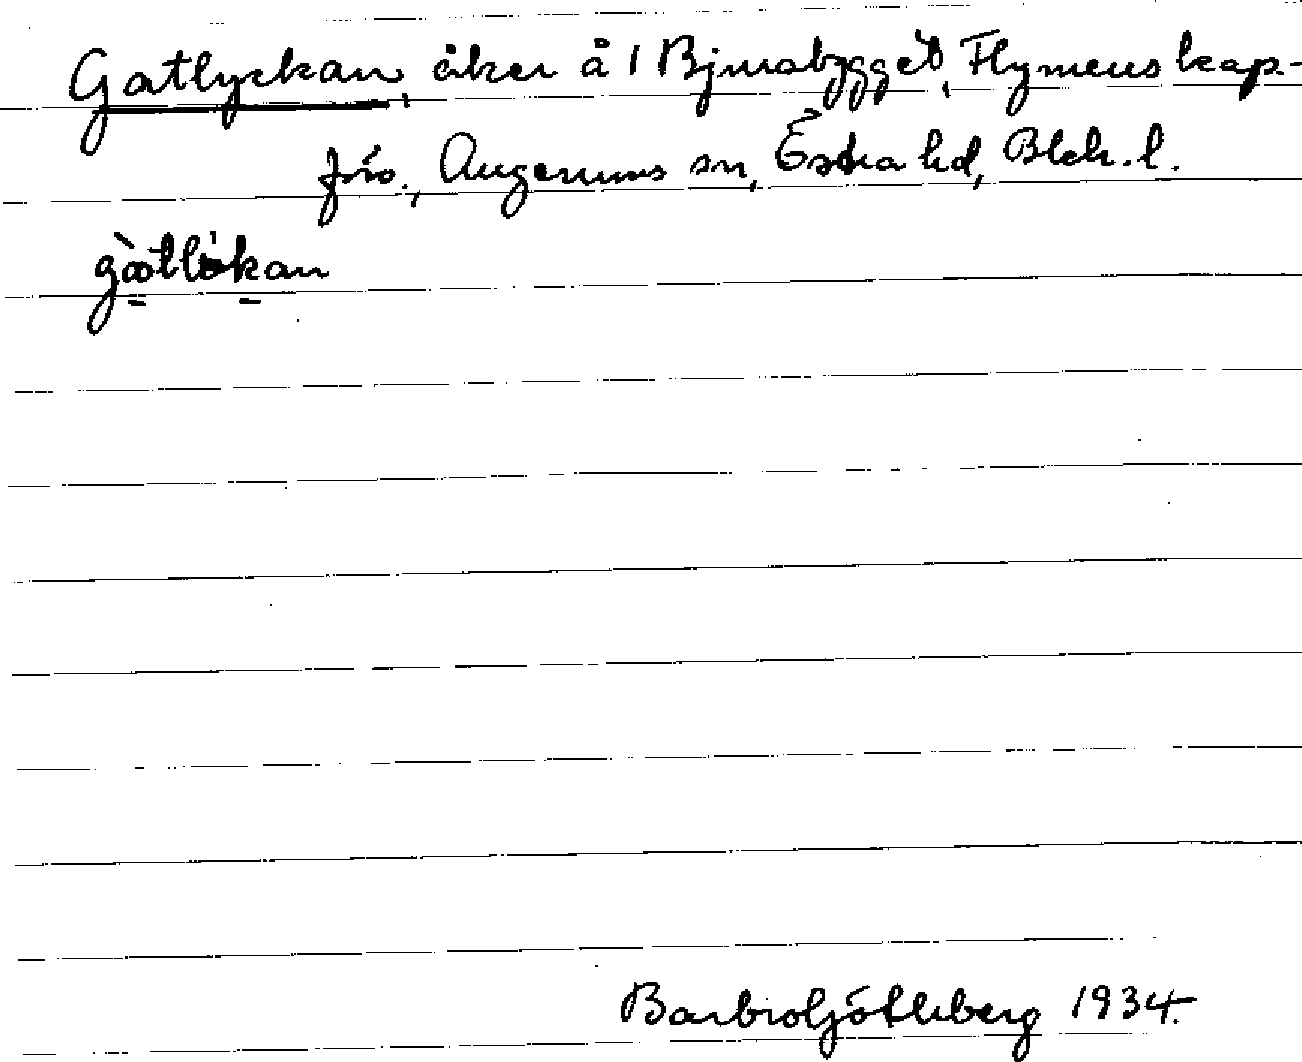 Gatlyckan, åker å 1 Bjurabygget, Flymens kap-
förs., Augerums sn, Östra hd, Blek. l.
gatlökan
Barbro Götleberg 1934.